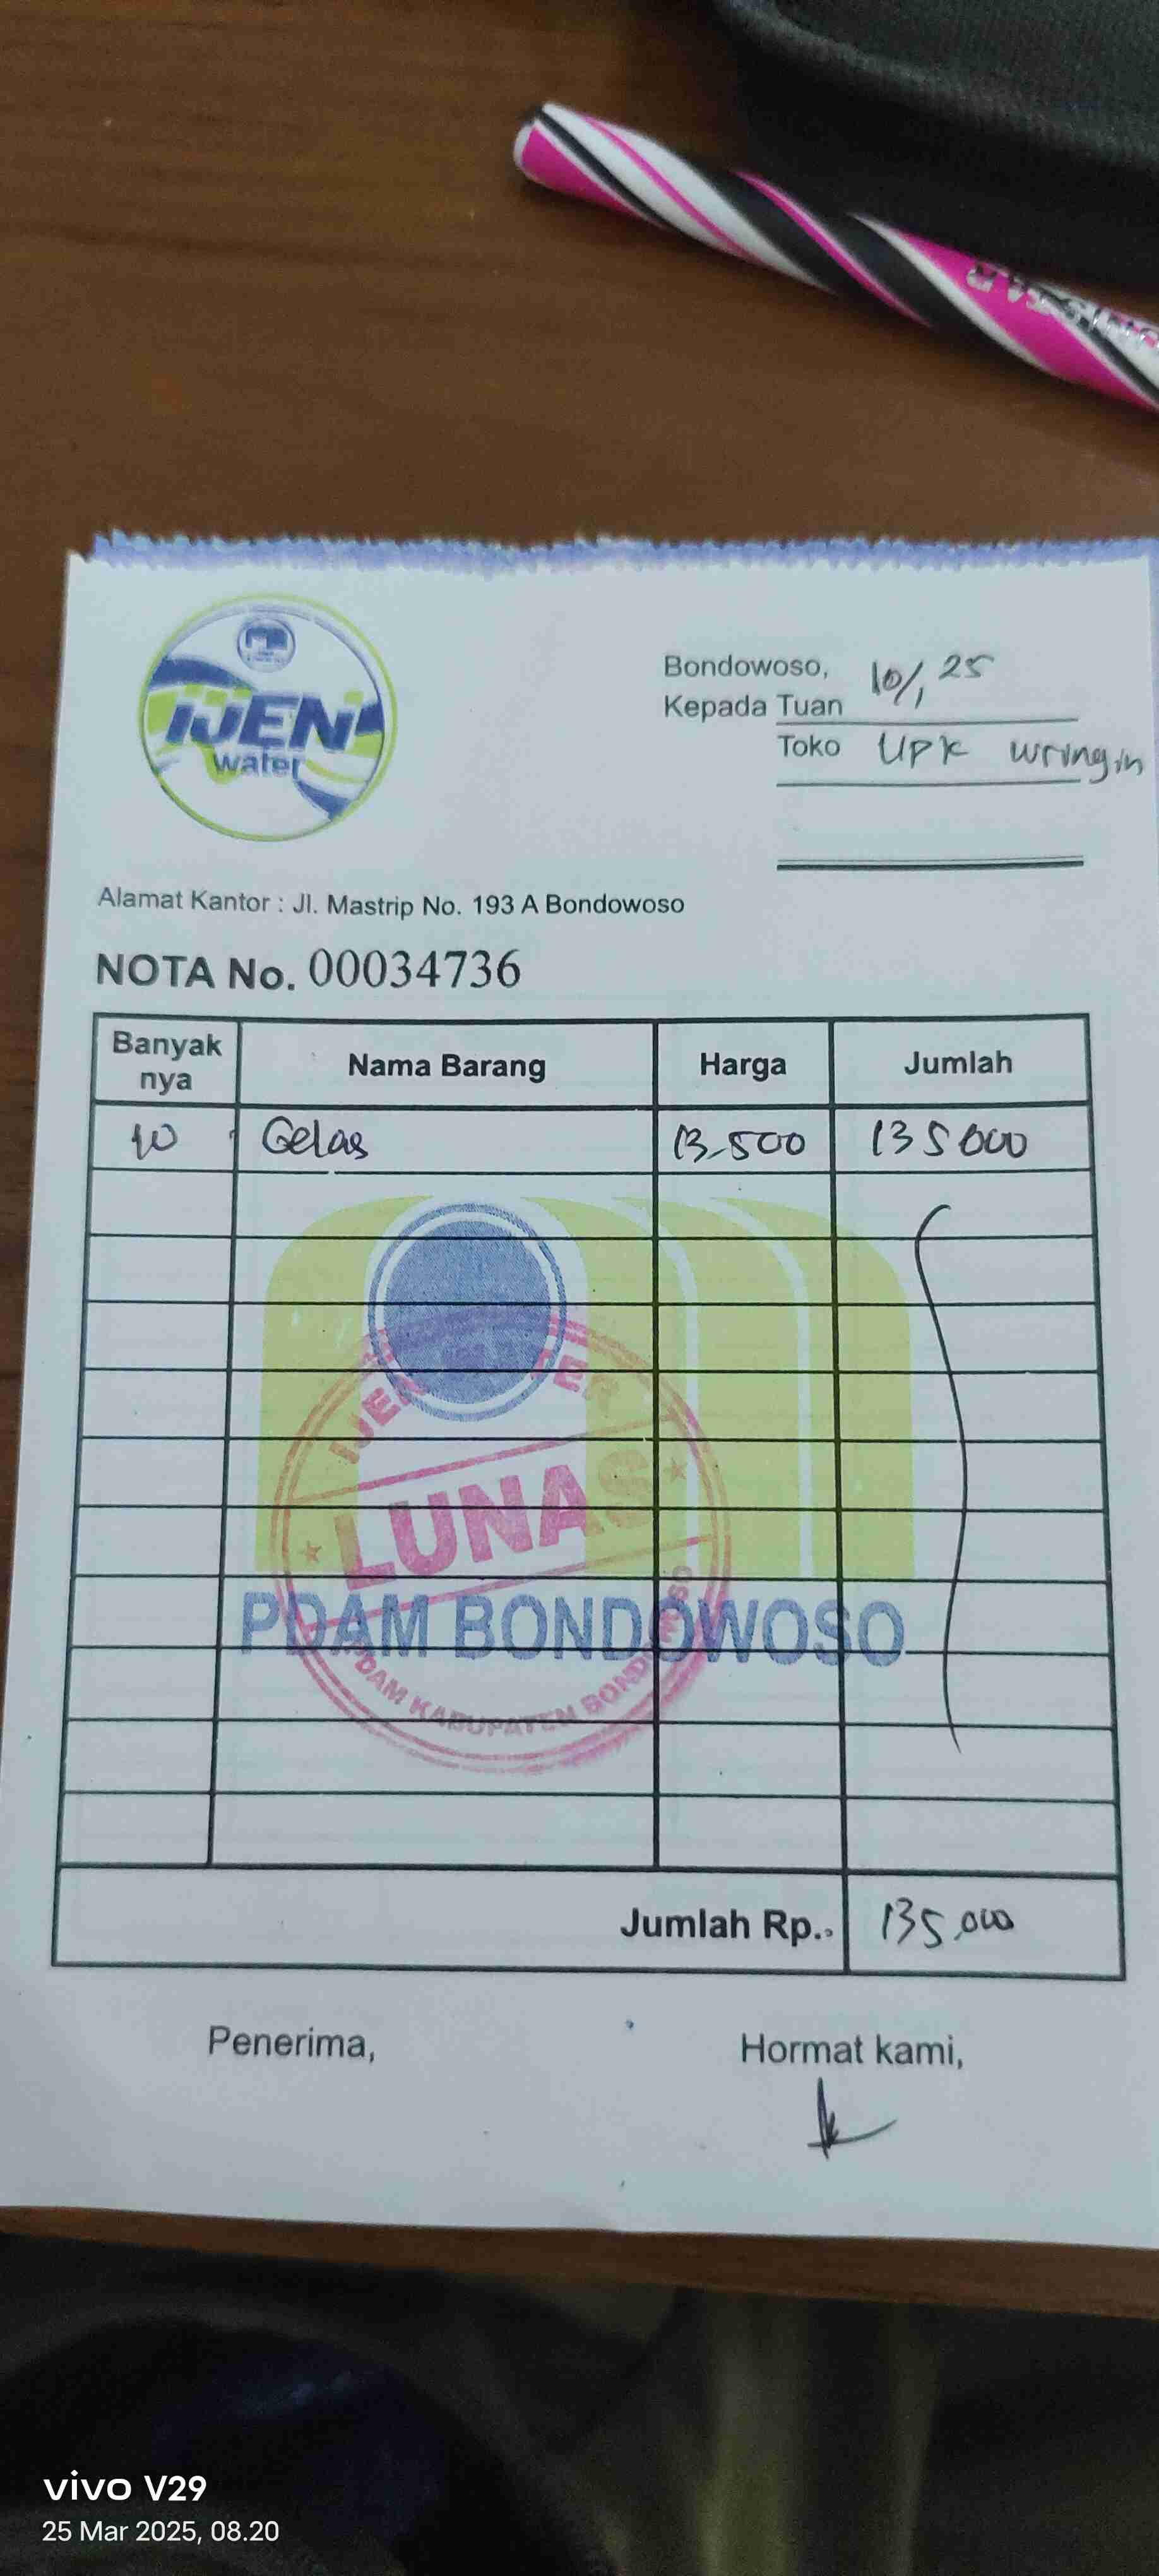 IJEN
water
Bondowoso, 10/1 25
Kepada Tuan
Toko UPK Wringin
Alamat Kantor : Jl. Mastrip No. 193 A Bondowoso
NOTA No. 00034736
Banyak nya Nama Barang Harga Jumlah
10 Gelas 13.500 135000
LUNAS
PDAM BONDOWOSO
PDAM KABUPATEN BONDOWOSO
Jumlah Rp. 135.000
Penerima, Hormat kami,
vivo V29
25 Mar 2025, 08.20